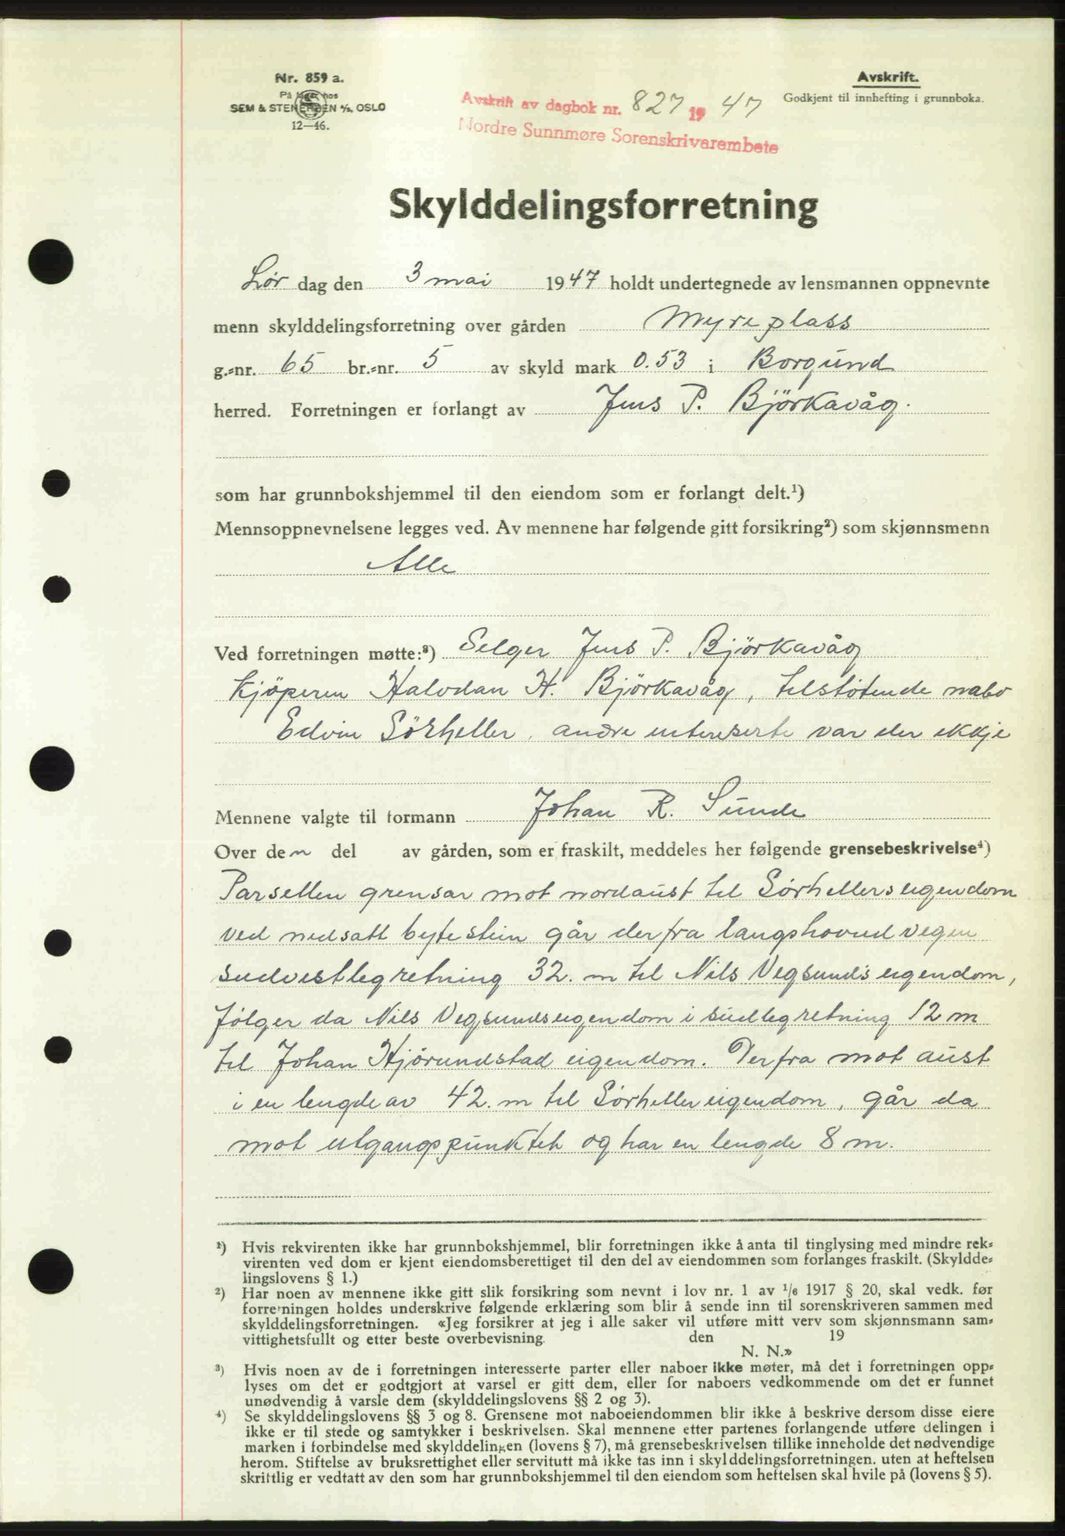 Nr. 859 a.
På lager hos
SEM & STENERSEN A/S, OSLO
12—46.
Avskrift.
Godkjent til innhefting i grunnboka.
Avskrift av dagbok nr. 827 19 47
Nordre Sunnmøre Sorenskriverembete
Skylddelingsforretning
Lør dag den 3 mai 1947 holdt undertegnede av lensmannen oppnevnte
menn skylddelingsforretning over gården Myreplass
g.-nr. 65 br.-nr. 5 av skyld mark 0.53 i Borgund
herred. Forretningen er forlangt av Jens P. Björkavåg.
som har grunnbokshjemmel til den eiendom som er forlangt delt.¹)
Mennsoppnevnelsene legges ved. Av mennene har følgende gitt forsikring²) som skjønnsmenn
Alle
Ved forretningen møtte:³) Selger Jens P. Björkavåg
kjöperen Halvdan H. Björkavåg, tilstötende nabo
Edvin Sörheller, andre interesserte var der ikkje
Mennene valgte til formann Johan R. Sunde
Over den del av gården, som er fraskilt, meddeles her følgende grensebeskrivelse⁴)
Parsellen grensar mot nordaust til Sörhellers eigendom
ved nedsatt bytestein går derfra langs hovudvegen
sudvestleg retning 32. m til Nils Vegsunds eigendom,
fölger da Nils Vegsunds eigendom i sudleg retning 12 m
til Johan Hjörundstad eigendom. Derfra mot aust
i en lengde av 42. m til Sörheller eigendom, går da
mot utgangspunktet og har en lengde 8 m.
¹) Hvis rekvirenten ikke har grunnbokshjemmel, blir forretningen ikke å anta til tinglysing med mindre rek-
virenten ved dom er kjent eiendomsberettiget til den del av eiendommen som forlanges fraskilt. (Skyldde-
lingslovens § 1.)
²) Har noen av mennene ikke gitt slik forsikring som nevnt i lov nr. 1 av 1/6 1917 § 20, skal vedk. før
forretningen holdes underskrive følgende erklæring som blir å sende inn til sorenskriveren sammen med
skylddelingsforretningen. «Jeg forsikrer at jeg i alle saker vil utføre mitt verv som skjønnsmann sam-
vittighetsfullt og etter beste overbevisning den 19
N. N.»
³) Hvis noen av de i forretningen interesserte parter eller naboer ikke møter, må det i forretningen opp-
lyses om det er godtgjort at varsel er gitt dem, eller for naboers vedkommende om det er funnet
unødvendig å varsle dem (skylddelingslovens §§ 2 og 3).
⁴) Se skylddelingslovens §§ 3 og 8. Grensene mot naboeiendommen blir ikke å beskrive dersom disse eiere
ikke er til stede og samtykker i beskrivelsen. Skal mennene etter partenes forlangende utføre delingen i
marken i forbindelse med skylddelingen (lovens § 7), må grensebeskrivelsen tillike inneholde det nødvendige
herom. Stiftelse av bruksrettighet eller servitutt må ikke tas inn i skylddelingsforretningen, uten at heftelsen
skriftlig er vedtatt av den som har grunnbokshjemmel til den eiendom som heftelsen skal hvile på (lovens § 5).